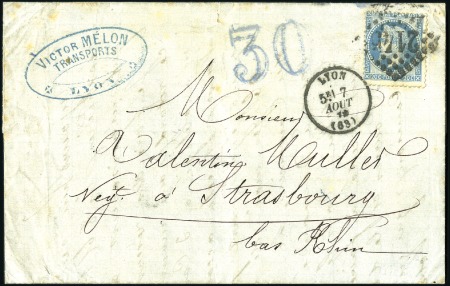 VICTOR MÉLON
TRANSPORTS
LYON
30
2145
LYON
5E/ 7
AOUT
(68)
Monsieur
Valentin Muller
Negt. à Strasbourg
bas Rhin